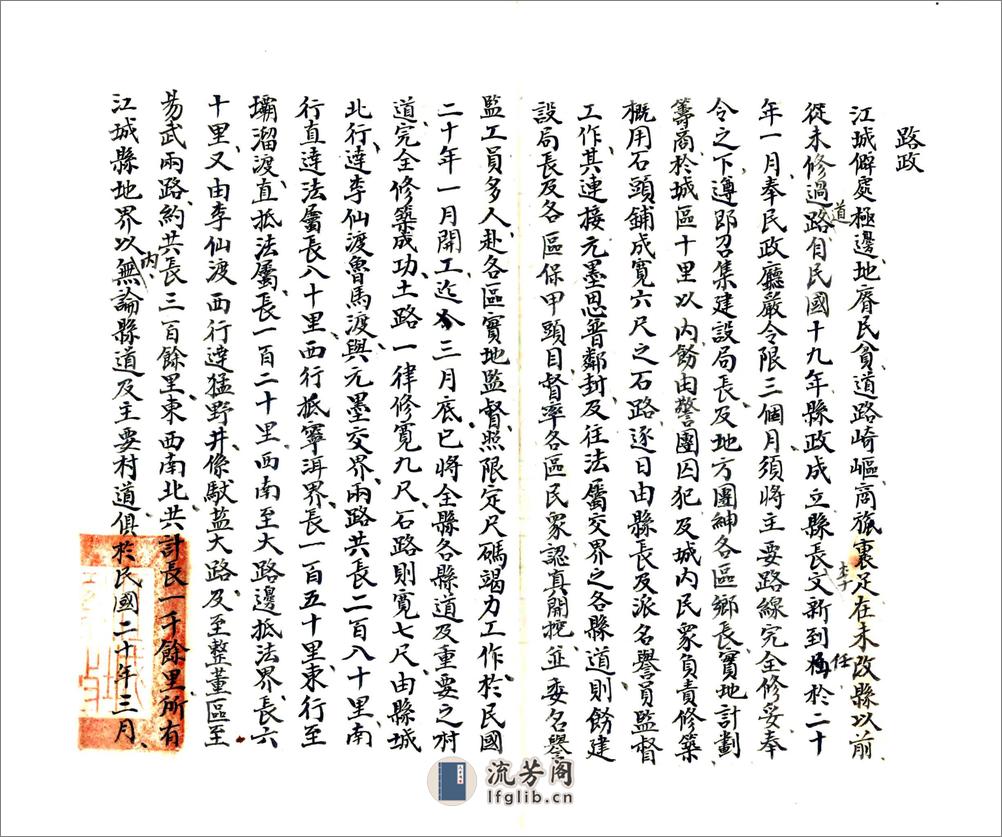 路政
江城僻處極邊地瘠民貧道路崎嶇商旅裹足在未改縣以前
從未修過道路自民國十九年縣政成立縣長李文新到任於二十
年一月奉民政廳嚴令限三個月須將主要路線完全修妥奉
令之下遵即召集建設局長及地方團紳各區鄉長實地計劃
籌商於城區十里以內飭由警團囚犯及城內民衆負責修築
概用石頭鋪成寬六尺之石路逐日由縣長及派名譽員監督
工作其連接元墨思普鄰封及往法屬交界之各縣道則飭建
設局長及各區保甲頭目督率各區民衆認真開挖並委名譽
監工員多人赴各區實地監督照限定尺碼竭力工作於民國
二十年一月開工迄今三月底已將全縣各縣道及重要之村
道完全修築成功土路一律修寬九尺石路則寬七尺由縣城
北行達李仙渡魯馬渡與元墨交界兩路共長二百八十里南
行直達法屬長八十里西行抵寧洱界長一百五十里東行至
壩溜渡直抵法屬長一百二十里西南至大路邊抵法界長六
十里又由李仙渡西行達猛野井係馱盐大路及至整董區至
易武兩路約共長三百餘里東西南北共計長一千餘里所有
江城縣地界以內無論縣道及主要村道俱於民國二十年三月
流芳阁
lfglib.cn